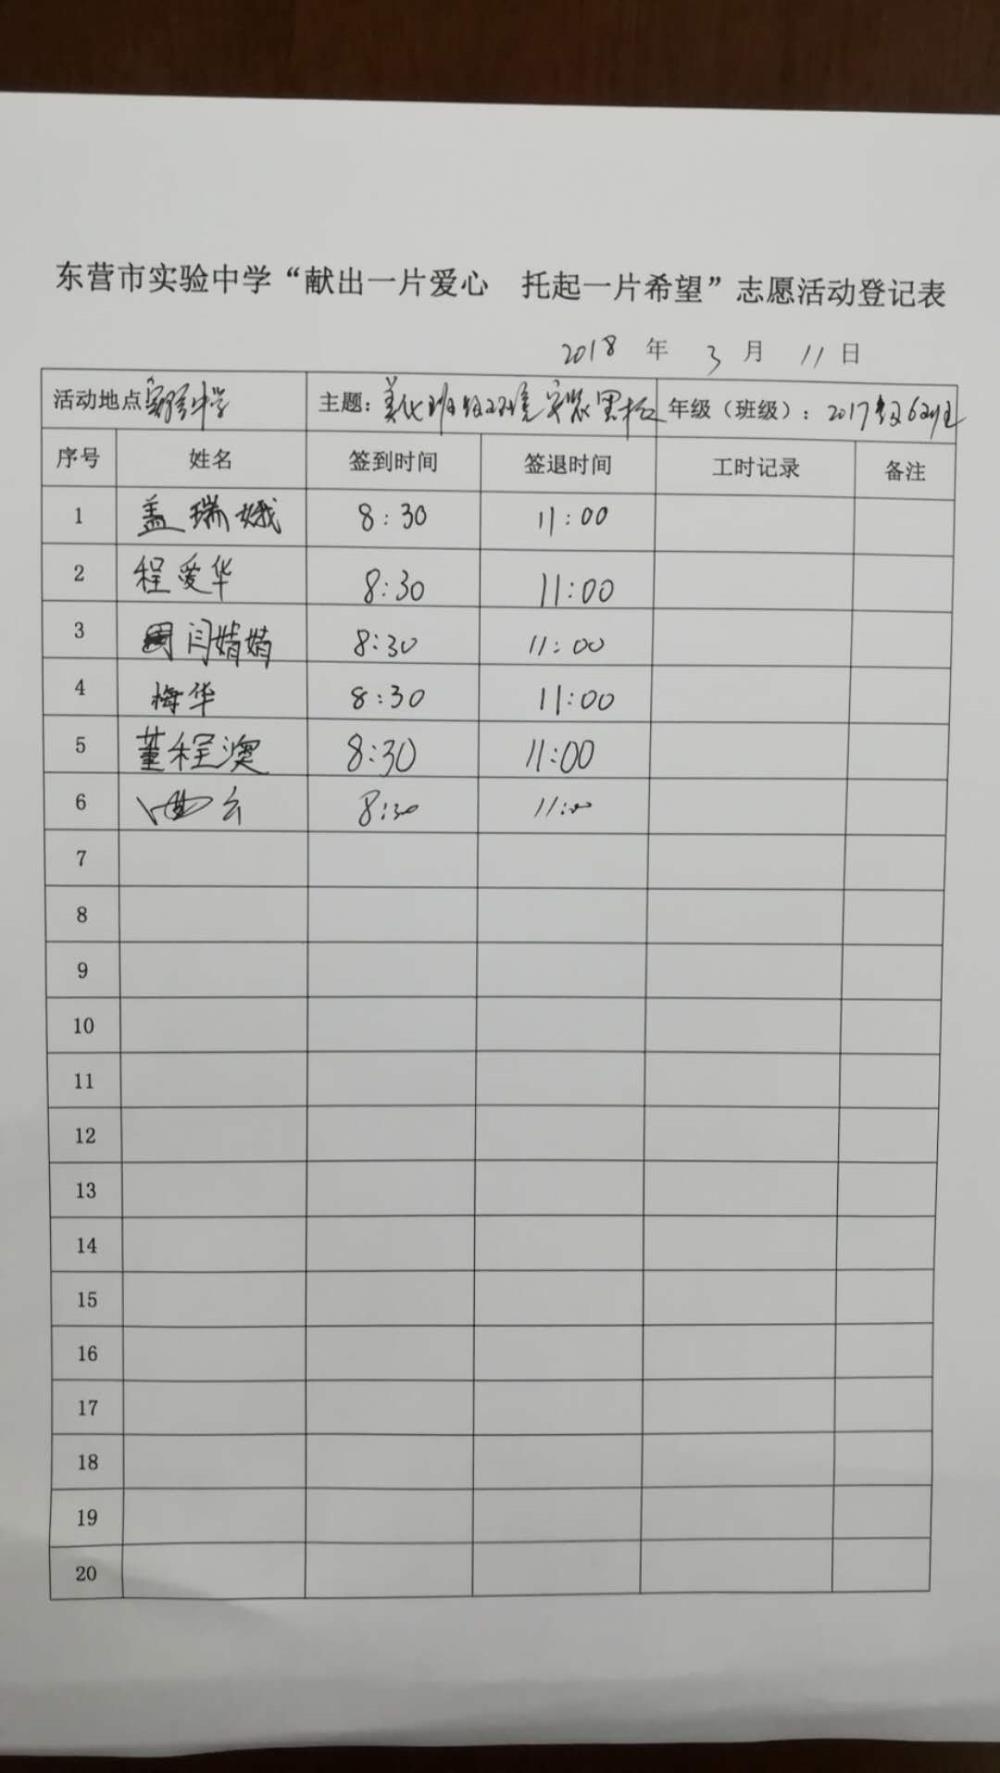 东营市实验中学“献出一片爱心 托起一片希望”志愿活动登记表
2018 年 3 月 11 日
活动地点 实验中学 主题：美化班级环境安装黑板 年级（班级）：2017级6班
序号 姓名 签到时间 签退时间 工时记录 备注
1 盖瑞娥 8:30 11:00
2 程爱华 8:30 11:00
3 闫婧婧 8:30 11:00
4 梅华 8:30 11:00
5 董程澳 8:30 11:00
6 8:30 11:00
7
8
9
10
11
12
13
14
15
16
17
18
19
20